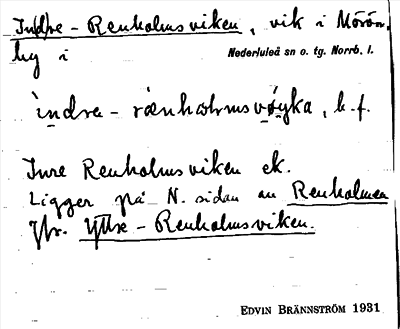 Indre-Renholmsviken, vik i Mörön,
by i Nederluleå sn o. tg. Norrb. l.
ìndra-rænhωlmsvø̣yka, b.f.
Inre Renholmsviken ek.
Ligger på N. sidan av Renholmen
Jfr. Yttre-Renholmsviken.
EDVIN BRÄNNSTRÖM 1931